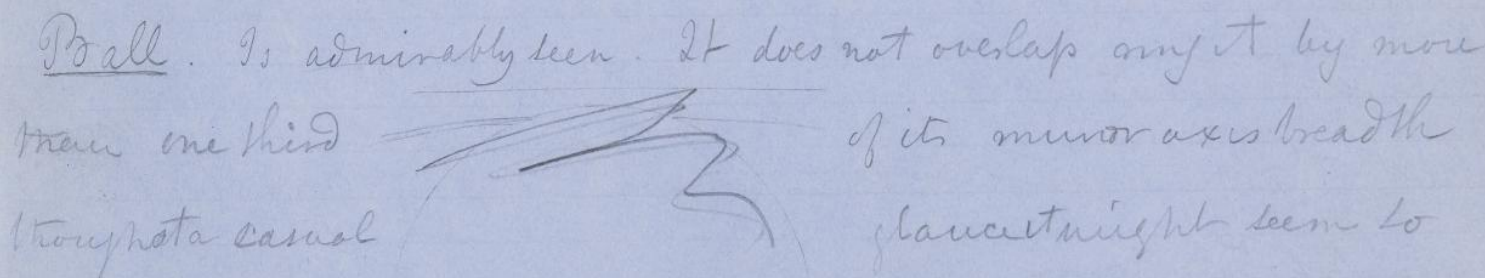 Ball. Is admirably seen. It does not overlap ring A by more
than one third of its minor axis breadth
though at a casual glance it might seem so